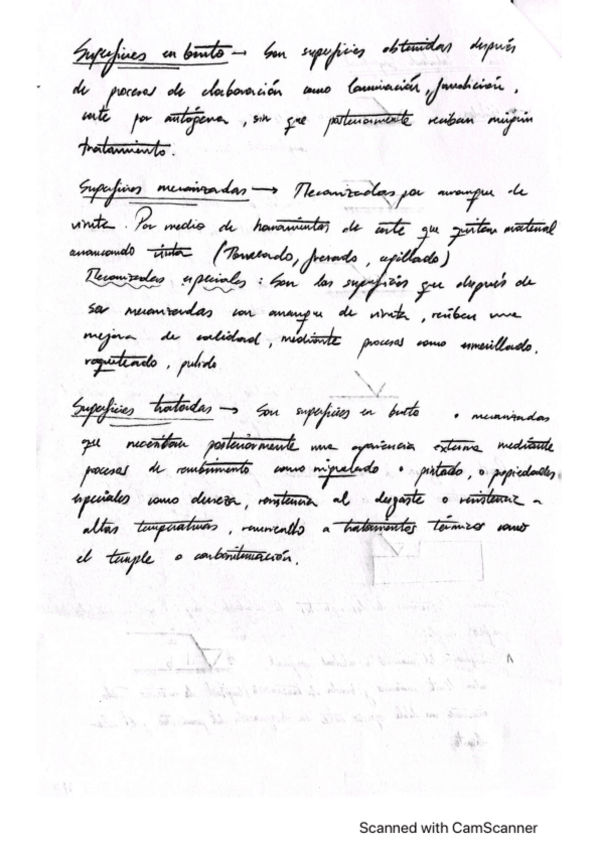 Superficies en bruto → Son superficies obtenidas después
de procesos de elaboración como laminación, fundición,
corte por autógena, sin que posteriormente reciban ningún
tratamiento.
Superficies mecanizadas → Mecanizadas por arranque de
viruta. Por medio de herramientas de corte que quitan material
arrancando viruta (Torneado, fresado, cepillado)
Mecanizadas especiales: Son las superficies que después de
ser mecanizadas con arranque de viruta, reciben una
mejora de calidad, mediante procesos como esmerillado,
rasqueteado, pulido.
Superficies tratadas → Son superficies en bruto o mecanizadas
que necesitan posteriormente una apariencia externa mediante
procesos de recubrimiento como niquelado o pintado, o propiedades
especiales como dureza, resistencia al desgaste o resistencia a
altas temperaturas, a tratamientos térmicos como
el temple o carbonitruración.
Scanned with CamScanner